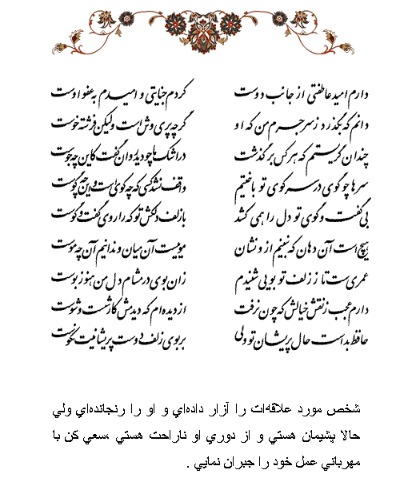 دارم امید عاطفتی از جانب دوست کردم جنایتی و امیدم به عفو اوست
دانم که بگذرد ز سر جرم من که او گرچه پری وش است ولیکن فرشته خوست
چندان گریستم که هر کس بر گذشت در اشک ما چو دید روان گفت کاین چه جوست
سرها چو گوی در سر کوی تو باختیم واقف نشد کسی که چه گوی است و این چه کوست
بی گفت و گوی تو دل را همی کشد با زلف دلکش تو که را روی گفت و گوست
هیچ است آن دهان که نبینم از او نشان مویست آن میان و ندانم آن چه موست
عمری ست تا ز زلف تو بویی شنیدم زان بوی در مشام دل من هنوز بوست
دارم عجب ز نقش خیالش که چون نرفت از دیده ام که کار شست و شوست
حافظ بد است حال پریشان تو ولی بر بوی زلف دوست پریشانیت نکوست
شخص مورد علاقه‌ات را آزار داده‌اي و او را رنجانده‌اي ولي
حالا پشيمان هستي و از دوري او ناراحت هستي ،سعي کن با
مهرباني عمل خود را جبران نمايي .